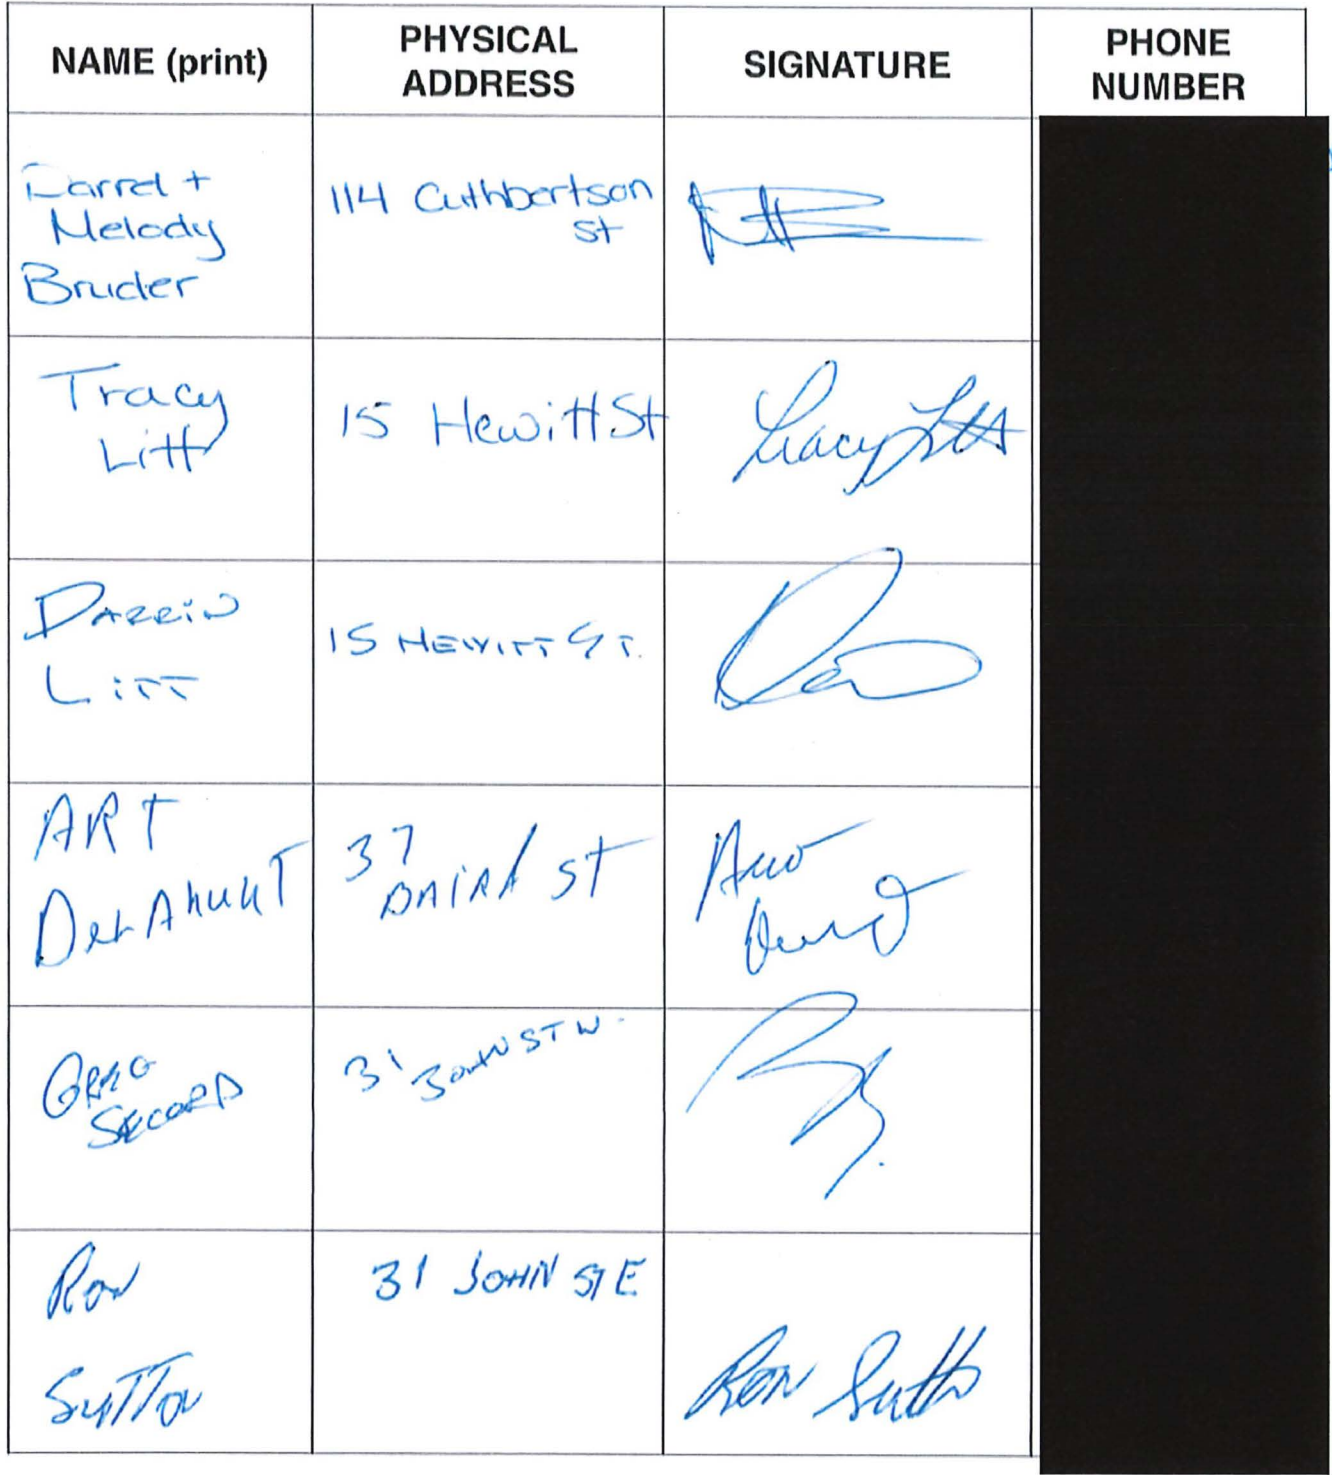 NAME (print) PHYSICAL ADDRESS SIGNATURE PHONE NUMBER
Darrel +
Melody
Bruder
114 Cuthbertson
St
Tracy
Litt
15 Hewitt St
Tracy Litt
DARRIN
LITT
15 HEWITT ST.
ART
DELAHUNT
37
BAIRD ST
GREG
SECORD
31 JOHN ST W.
RON
SUTTON
31 JOHN ST E
Ron Sutton